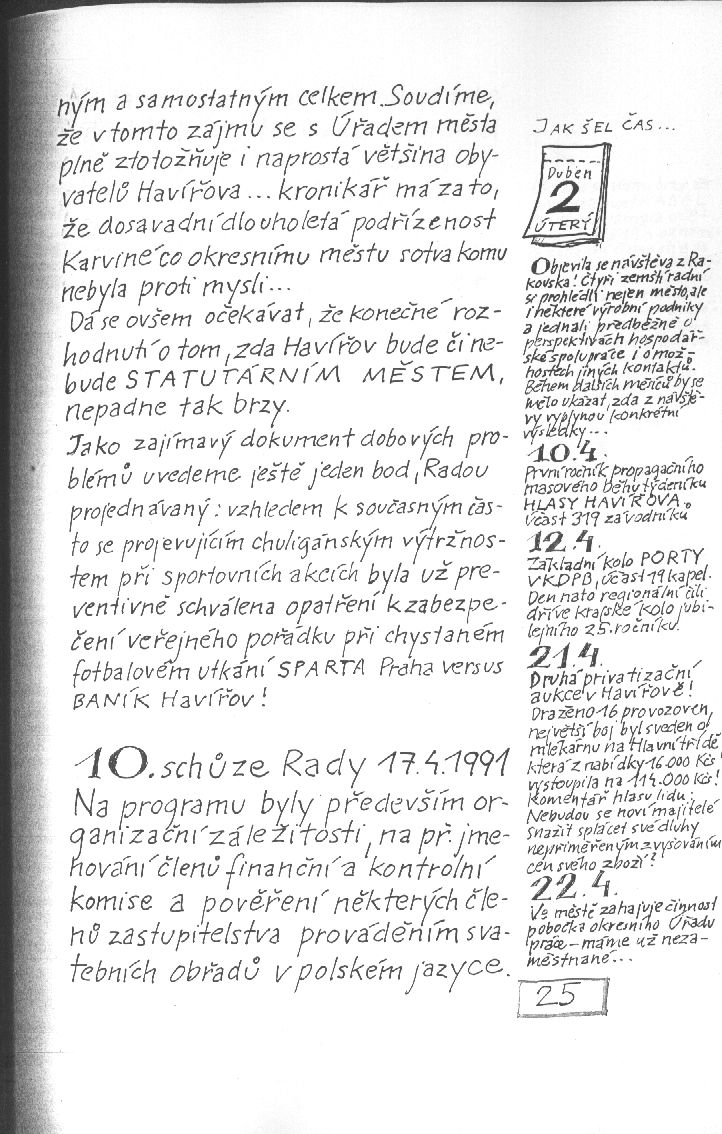 ným a samostatným celkem. Soudíme,
že v tomto zájmu se s Úřadem města
plně ztotožňuje i naprostá většina oby-
vatelů Havířova... kronikář má za to,
že dosavadní dlouholetá podřízenost
Karviné co okresnímu městu sotva komu
nebyla proti mysli...
Dá se ovšem očekávat, že konečné roz-
hodnutí o tom, zda Havířov bude či ne-
bude STATUTÁRNÍM MĚSTEM,
nepadne tak brzy.
Jako zajímavý dokument dobových pro-
blémů uvedeme ještě jeden bod, Radou
projednávaný: vzhledem k současným čas-
to se projevujícím chuligánským výtržnos-
tem při sportovních akcích byla už pre-
ventivně schválena opatření k zabezpe-
čení veřejného pořádku při chystaném
fotbalovém utkání SPARTA Praha versus
BANÍK Havířov!
10. schůze Rady 17.4.1991
Na programu byly především or-
ganizační záležitosti, na př. jme-
nování členů finanční a kontrolní
komise a pověření některých čle-
nů zastupitelstva prováděním sva-
tebních obřadů v polském jazyce.
JAK ŠEL ČAS...
Duben
2
ÚTERÝ
Objevila se návštěva z Ra-
kouska! Čtyři zemští radní
si prohlédli nejen město, ale
i některé výrobní podniky
a jednali předběžně o
perspektivách hospodář-
ské spolupráce i o mož-
nostech jiných kontaktů.
Během dalších měsíců by se
mělo ukázat, zda z návště-
vy vyplynou konkrétní
výsledky...
10.4.
První ročník propagačního
masového běhu týdeníku
HLASY HAVÍŘOVA.
Účast 319 závodníků
12.4.
Základní kolo PORTY
v KDPB, účast 19 kapel.
Den nato regionální čili
dříve krajské kolo jubi-
lejního 25. ročníku.
21.4.
Druhá privatizační
aukce v Havířově!
Draženo 16 provozoven,
největší boj byl sveden o
mlékárnu na Hlavní třídě
která z nabídky 16.000 Kčs
vystoupila na 114.000 Kčs!
Komentář hlasu lidu:
Nebudou se noví majitelé
snažit splácet své dluhy
nepřiměřeným zvyšováním
cen svého zboží?
22.4.
Ve městě zahajuje činnost
pobočka okresního Úřadu
práce - máme už neza-
městnané...
25